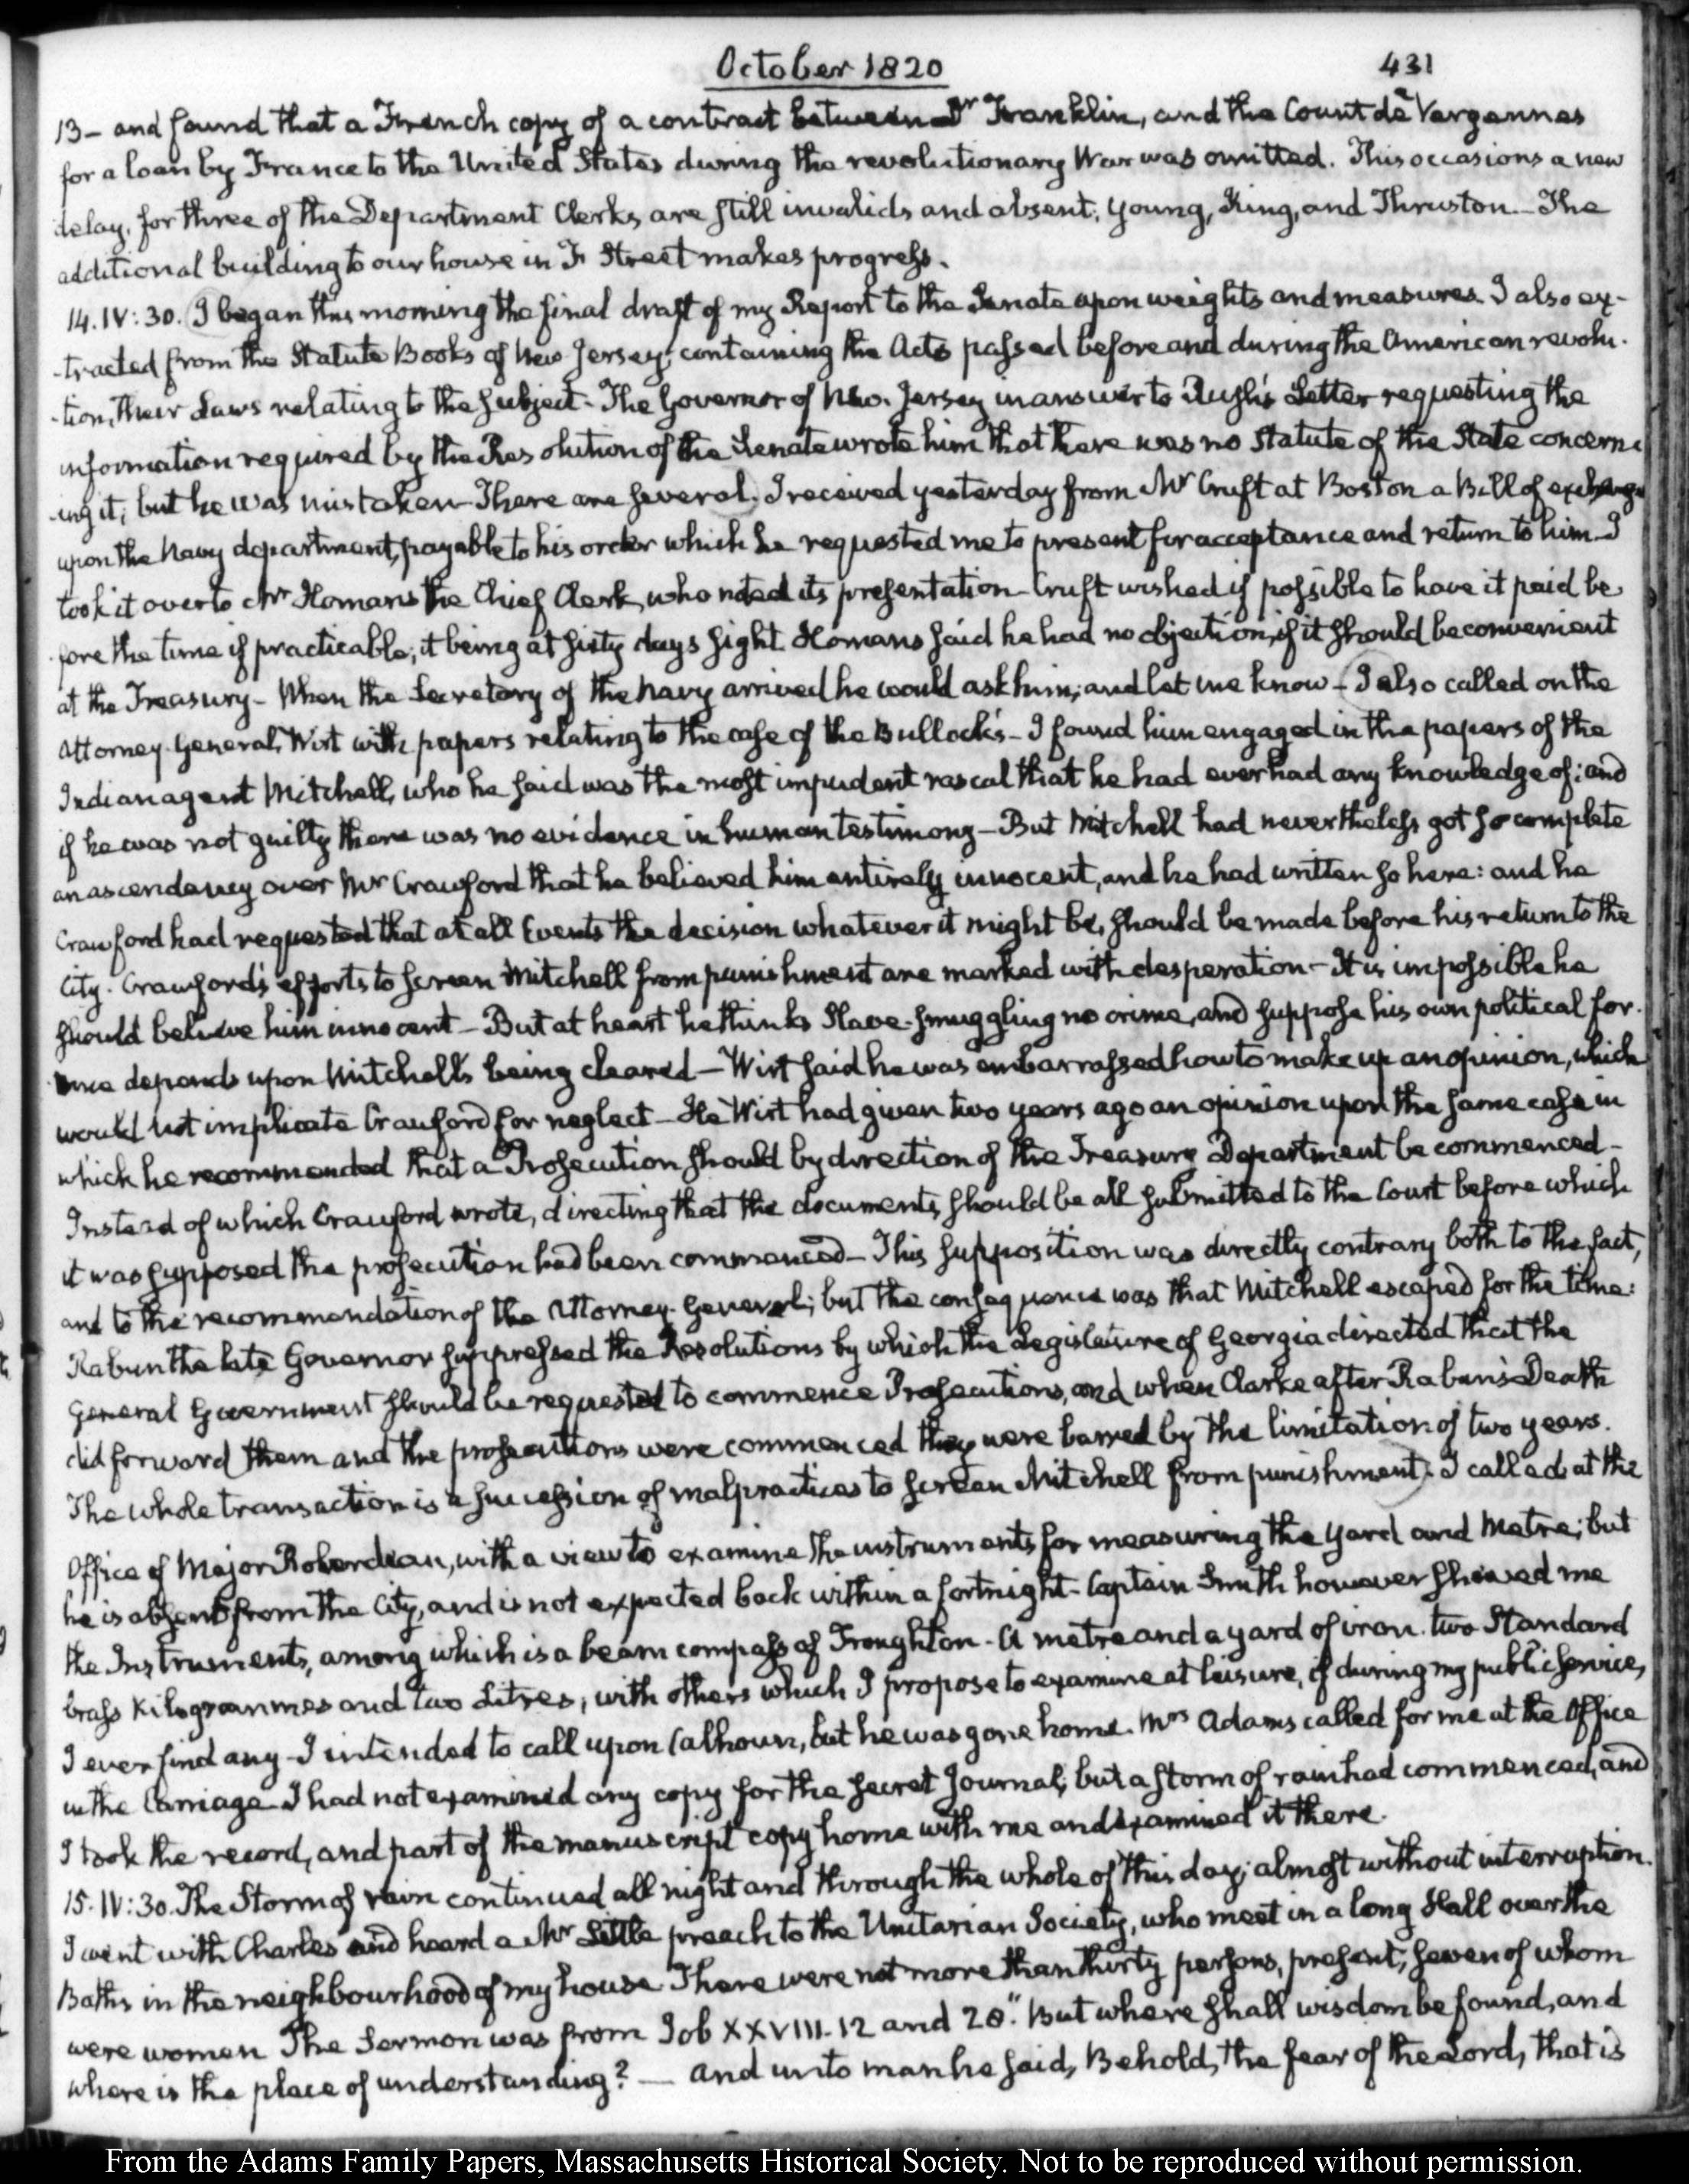 October 1820
431
13 - and found that a French copy of a contract between Dr Franklin, and the Count de Vergennes
for a loan by France to the United States during the revolutionary War was omitted. This occasions a new
delay, for three of the Department Clerks, are still invalids and absent; Young, King, and Thruston - The
additional building to our house in F Street makes progress.
14. IV:30. I began this morning the final draft of my Report to the Senate upon weights and measures. I also ex-
-tracted from the Statute Books of New-Jersey, containing the Acts passed before and during the American revolu-
-tion, their Laws relating to the subject - The Governor of New-Jersey in answer to Rush's Letter requesting the
information required by the Resolution of the Senate wrote him that there was no Statute of the State concern-
-ing it; but he was mistaken - There are several. I received yesterday from Mr Cruft at Boston a Bill of exchange
upon the Navy department, payable to his order which he requested me to present for acceptance and return to him - I
took it over to Mr Homans the Chief Clerk, who noted its presentation - Cruft wished if possible to have it paid be-
-fore the time if practicable; it being at sixty days sight. Homans said he had no objection, if it should be convenient
at the Treasury - When the Secretary of the Navy arrived he would ask him; and let me know - I also called on the
Attorney-General, Wirt with papers relating to the case of the Bullock's - I found him engaged in the papers of the
Indian agent Mitchell, who he said was the most impudent rascal that he had ever had any knowledge of; and
if he was not guilty there was no evidence in human testimony - But Mitchell had nevertheless got so complete
an ascendency over Mr Crawford that he believed him entirely innocent, and he had written so here: and he
Crawford had requested that at all Events the decision whatever it might be, should be made before his return to the
City. Crawford's efforts to screen Mitchell from punishment are marked with desperation - It is impossible he
should believe him innocent - But at heart he thinks Slave-smuggling no crime, and suppose his own political for-
-tune depends upon Mitchell's being cleared - Wirt said he was embarrassed how to make up an opinion, which
would not implicate Crawford for neglect - He Wirt had given two years ago an opinion upon the same case in
which he recommended that a Prosecution should by direction of the Treasury Department be commenced -
Instead of which Crawford wrote, directing that the documents should be all submitted to the Court before which
it was supposed the prosecution had been commenced - This supposition was directly contrary both to the fact,
and to the recommendation of the Attorney-General; but the consequence was that Mitchell escaped for the time:
Rabun the late Governor suppressed the Resolutions by which the Legislature of Georgia directed that the
General Government should be requested to commence Prosecutions, and when Clarke after Rabun's Death
did forward them and the prosecutions were commenced they were barred by the limitation of two years.
The whole transaction is a succession of malpractices to screen Mitchell from punishment. I called at the
Office of Major Roberdeau, with a view to examine the instruments for measuring the yard and Metre; but
he is absent from the City, and is not expected back within a fortnight - Captain Smith however shewed me
the Instruments, among which is a beam compass of Troughton - A metre and a yard of iron. two Standard
brass Kilogrammes and two Litres, with others which I propose to examine at leisure, if during my public service,
I ever find any - I intended to call upon Calhoun, but he was gone home. Mrs Adams called for me at the Office
in the Carriage - I had not examined any copy for the secret Journal, but a storm of rain had commenced, and
I took the record, and part of the manuscript copy home with me and examined it there.
15. IV:30. The Storm of rain continued all night and through the whole of this day, almost without interruption.
I went with Charles and heard a Mr Little preach to the Unitarian Society, who meet in a long Hall over the
Baths in the neighbourhood of my house. There were not more than thirty persons, present, seven of whom
were women The Sermon was from Job XXVIII. 12 and 28. "But where shall wisdom be found, and
where is the place of understanding? — and unto man he said, Behold, the fear of the Lord, that is
From the Adams Family Papers, Massachusetts Historical Society. Not to be reproduced without permission.